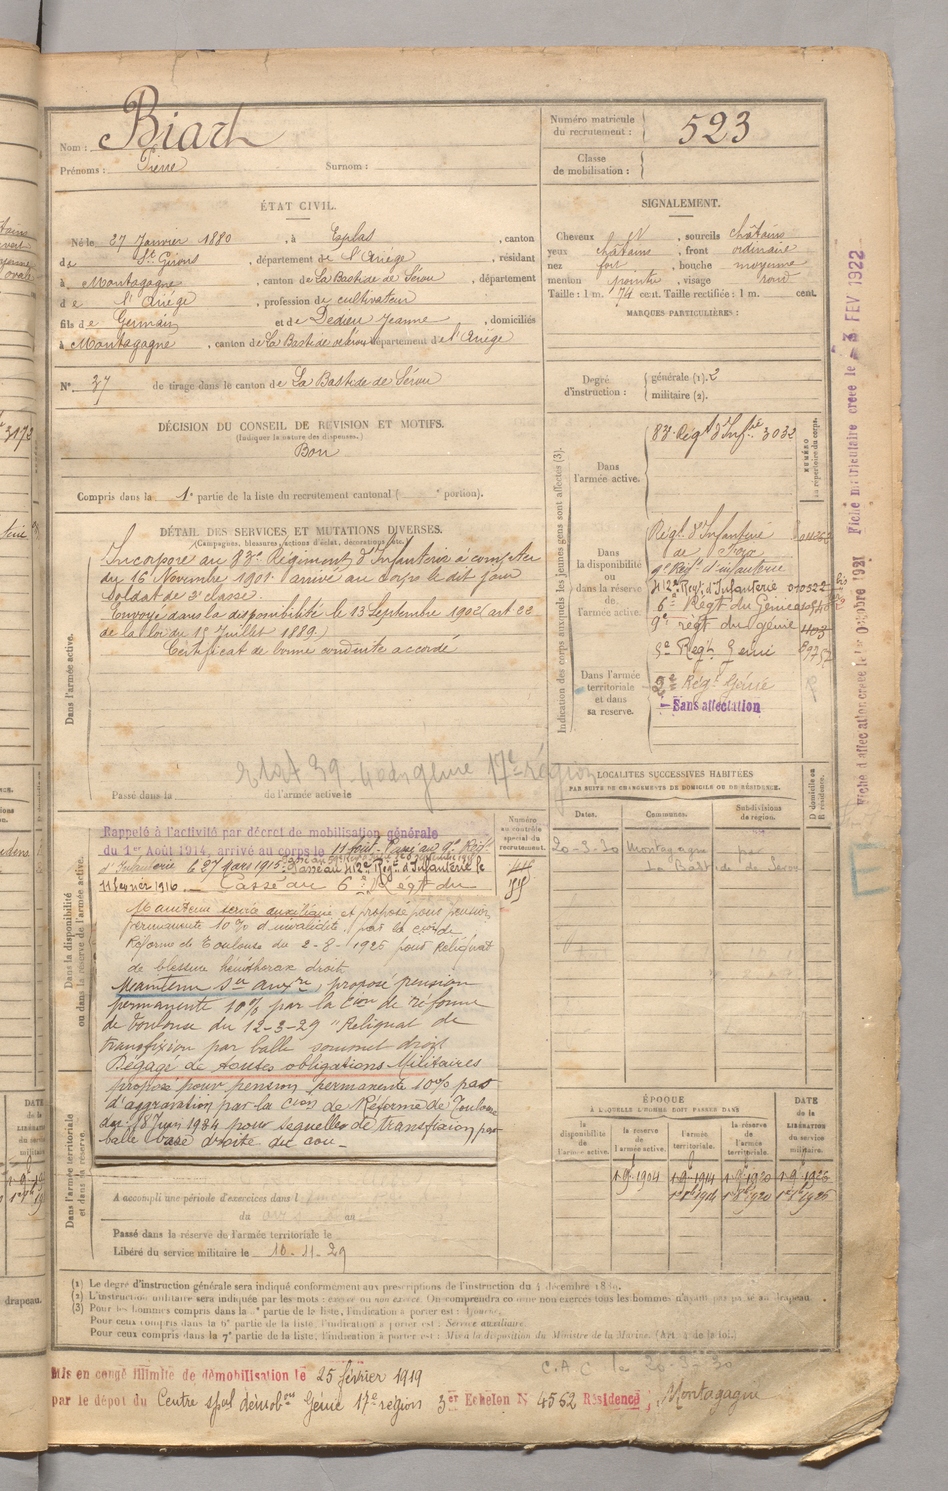 Nom : Biart
Prénoms : Pierre Surnom :
Numéro matricule du recrutement : 523
Classe de mobilisation :
ÉTAT CIVIL.
Né le 27 Janvier 1880, à Esplas, canton
de St Girons, département de l'Ariège, résidant
à Montagagne, canton de La Bastide de Sérou, département
de l'Ariège, profession de cultivateur
fils de Germain et de Dedieu Jeanne, domiciliés
à Montagagne, canton de La Bastide de Sérou département de l'Ariège
N° 37 de tirage dans le canton de La Bastide de Sérou
SIGNALEMENT.
Cheveux N, sourcils châtains
yeux châtains, front ordinaire
nez fort, bouche moyenne
menton pointu, visage rond
Taille : 1 m. 74 cent. Taille rectifiée : 1 m. cent.
MARQUES PARTICULIÈRES :
Degré d'instruction : générale (1). 2
militaire (2).
DÉCISION DU CONSEIL DE RÉVISION ET MOTIFS.
(Indiquez la nature des dispenses.)
Bon
Compris dans la 1e partie de la liste du recrutement cantonal ( portion).
DÉTAIL DES SERVICES ET MUTATIONS DIVERSES.
(Campagnes, blessures, actions d'éclat, décorations, etc.)
Dans l'armée active.
Incorporé au 83e Régiment d'Infanterie à compter
du 16 Novembre 1901 arrivé au corps le dit jour
Soldat de 2e classe.
Envoyé dans la disponibilité le 13 Septembre 1902 (art 22
de la loi du 15 Juillet 1889.)
Certificat de bonne conduite accordé
17e région
Passé dans la de l'armée active le
Indication des corps auxquels les jeunes gens sont affectés (3).
Dans l'armée active.
83e Regt d'Infrie 3032
NUMÉRO au répertoire du corps.
Dans la disponibilité ou dans la réserve de l'armée active.
Régt d'Infanterie
de Foix
9e Régt d'infanterie
412e Regt d'Infanterie
6e Regt du Génie
9e regt du génie
Dans l'armée territoriale et dans sa reserve.
2e Régt Génie
Sans affectation
Fiche matriculaire créée le 3 FEV 1922
LOCALITÉS SUCCESSIVES HABITÉES
PAR SUITE DE CHANGEMENTS DE DOMICILE OU DE RÉSIDENCE.
Dates. Communes. Subdivisions de région. D domicile ou R résidence.
20-3-30 Montagagne par
La Bastide de Serou
Numéro au contrôle spécial du recrutement.
Dans la disponibilité ou dans la réserve de l'armée active.
Rappelé à l'activité par décret de mobilisation générale
du 1er Août 1914, arrivé au corps le 11 août. Passé au 9e Régt
d'Infanterie le 27 mars 1915. Passé au 412e Regt d'Infanterie le
11 février 1916. Passé au 6e Régt du
Maintenu service auxiliaire et proposé pour pension
permanente 10% d'invalidité par la Cion de
Réforme de Toulouse du 2-8-1925 pour Reliquat
de blessure hémithorax droit
Maintenu Sce auxre, proposé pension
permanente 10% par la Cion de réforme
de Toulouse du 12-3-29 "Reliquat de
transfixion par balle sommet droit
Dégagé de toutes obligations Militaires
proposé pour pension permanente 10% pas
d'aggravation par la Cion de Réforme de Toulouse
du 18 Juin 1934 pour séquelles de transfixion par
balle base droite du cou_
Dans l'armée territoriale et dans sa réserve.
A accompli une période d'exercices dans l
du au
Passé dans la réserve de l'armée territoriale le
Libéré du service militaire le 10-11-29
ÉPOQUE
A LAQUELLE L'HOMME DOIT PASSER DANS
la disponibilité de l'armée active. la réserve de l'armée active. l'armée territoriale. la réserve de l'armée territoriale. DATE de la LIBÉRATION du service militaire.
1-9-1904 1-9-1914 1-9-1920 1-9-1926
(1) Le degré d'instruction générale sera indiqué conformément aux prescriptions de l'instruction du 4 décembre 1889.
(3) Pour les hommes compris dans la 2e partie de la liste, l'indication à porter est : Ajourné.
Pour ceux compris dans la 6e partie de la liste, l'indication à porter est : Service auxiliaire.
Pour ceux compris dans la 7e partie de la liste, l'indication à porter est : Mis à la disposition du Ministre de la Marine. (Art. 4 de la loi.)
C.A.C. le 20-3-30
Mis en congé illimité de démobilisation le 25 février 1919
par le dépot du Centre spal démobon Génie 17e région 3er Echelon N° 4562 Résidence, Montagagne